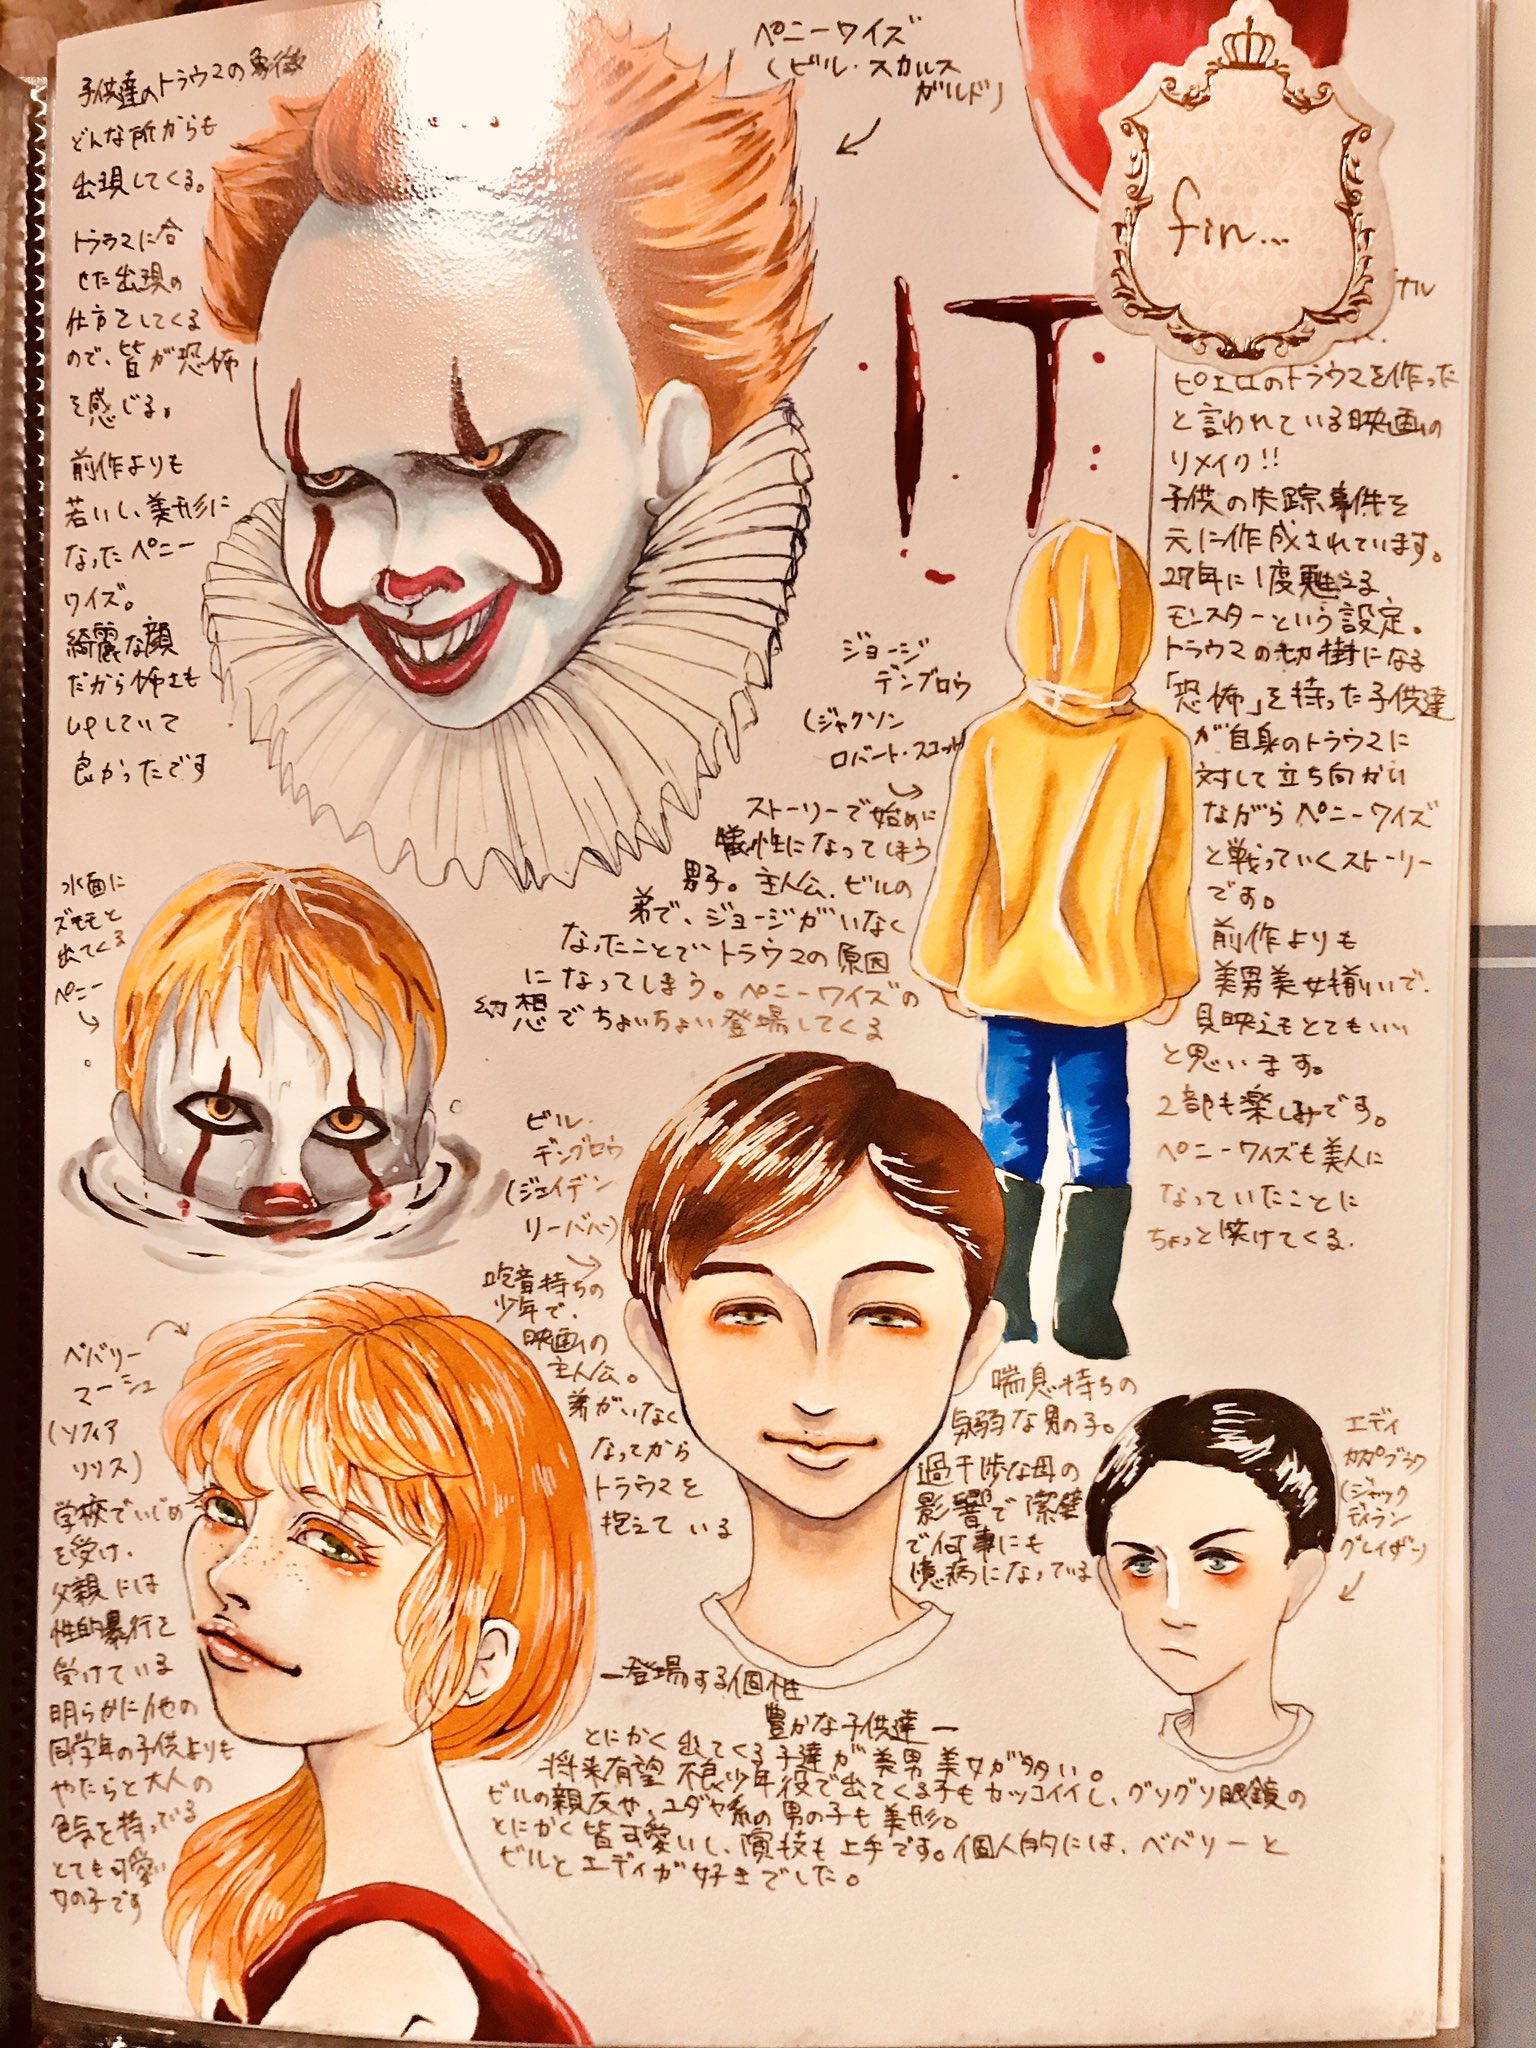 ペニーワイズ
(ビル・スカルス
ガルド)
子供達のトラウマの象徴
どんな所からも
出現してくる。
トラウマに合わ
せた出現の
仕方をしてくる
ので、皆が恐怖
を感じる。
前作よりも
若いし、美形に
なったペニー
ワイズ。
綺麗な顔
だから怖さも
upしていて
良かったです
fin...
IT
ピエロのトラウマを作った
と言われている映画の
リメイク!!
子供の失踪事件を
元に作成されています。
27年に1度甦える
モンスターという設定。
トラウマの
「恐怖」を持った子供達
が自身のトラウマに
対して立ち向かい
ながらペニーワイズ
と戦っていくストーリー
です。
前作よりも
美男美女揃いで、
見映えもとてもいい
と思います。
2部も楽しみです。
ペニーワイズも美人に
なっていたことに
ちょっと笑けてくる.
ジョージ
デンブロウ
(ジャクソン
ロバート・スコット)
ストーリーで始めに
犠牲になってしまう
男子。主人公、ビルの
弟で、ジョージがいなく
なったことでトラウマの原因
になってしまう。ペニーワイズの
幻想でちょいちょい登場してくる
水面に
ズモモと
出てくる
ペニー
ビル・
デンブロウ
(ジェイデン
リーバハー)
吃音持ちの
少年で、
映画の
主人公。
弟がいなく
なってから
トラウマを
抱えている
ベバリー
マーシュ
(ソフィア
リリス)
学校でいじめ
を受け、
父親には
性的暴行を
受けている
明らかに他の
同学年の子供よりも
やたらと大人の
色気を持ってる
とても可愛い
女の子です
喘息持ちの
気弱な男の子。
過干渉な母の
影響で潔癖
で何事にも
臆病になっている
エディ
カスプブラク
(ジャック
ディラン
グレイザー)
—登場する個性
豊かな子供達—
とにかく出てくる子達が美男美女が多い。
将来有望 不良少年役で出てくる子もカッコイイし、グリグリ眼鏡の
ビルの親友や、ユダヤ系の男の子も美形。
とにかく皆可愛いし、演技も上手です。個人的には、ベバリーと
ビルとエディが好きでした。